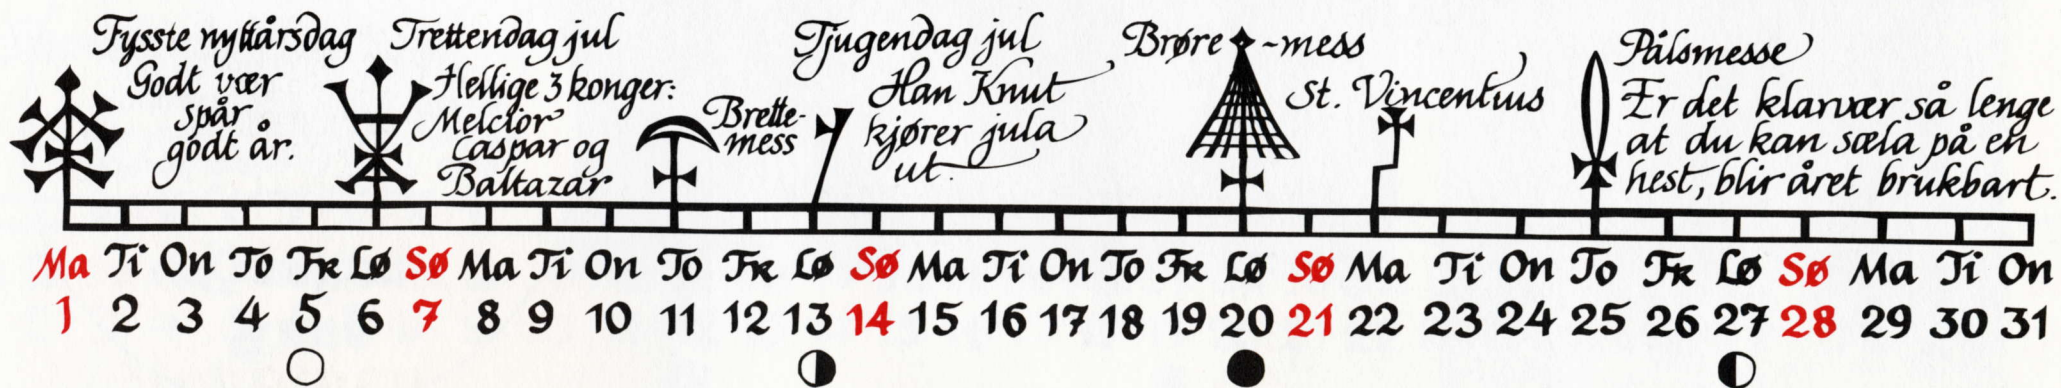 Fysste nyttårsdag
Godt vær
spår
godt år.
Trettendag jul
Hellige 3 konger:
Melcior
Caspar og
Baltazar
Brette-
mess
Tjugendag jul
Han Knut
kjører jula
ut.
Brøre-mess
St. Vincentius
Pålsmesse
Er det klarvær så lenge
at du kan sæla på en
hest, blir året brukbart.
Ma Ti On To Fr Lø Sø Ma Ti On To Fr Lø Sø Ma Ti On To Fr Lø Sø Ma Ti On To Fr Lø Sø Ma Ti On
1 2 3 4 5 6 7 8 9 10 11 12 13 14 15 16 17 18 19 20 21 22 23 24 25 26 27 28 29 30 31